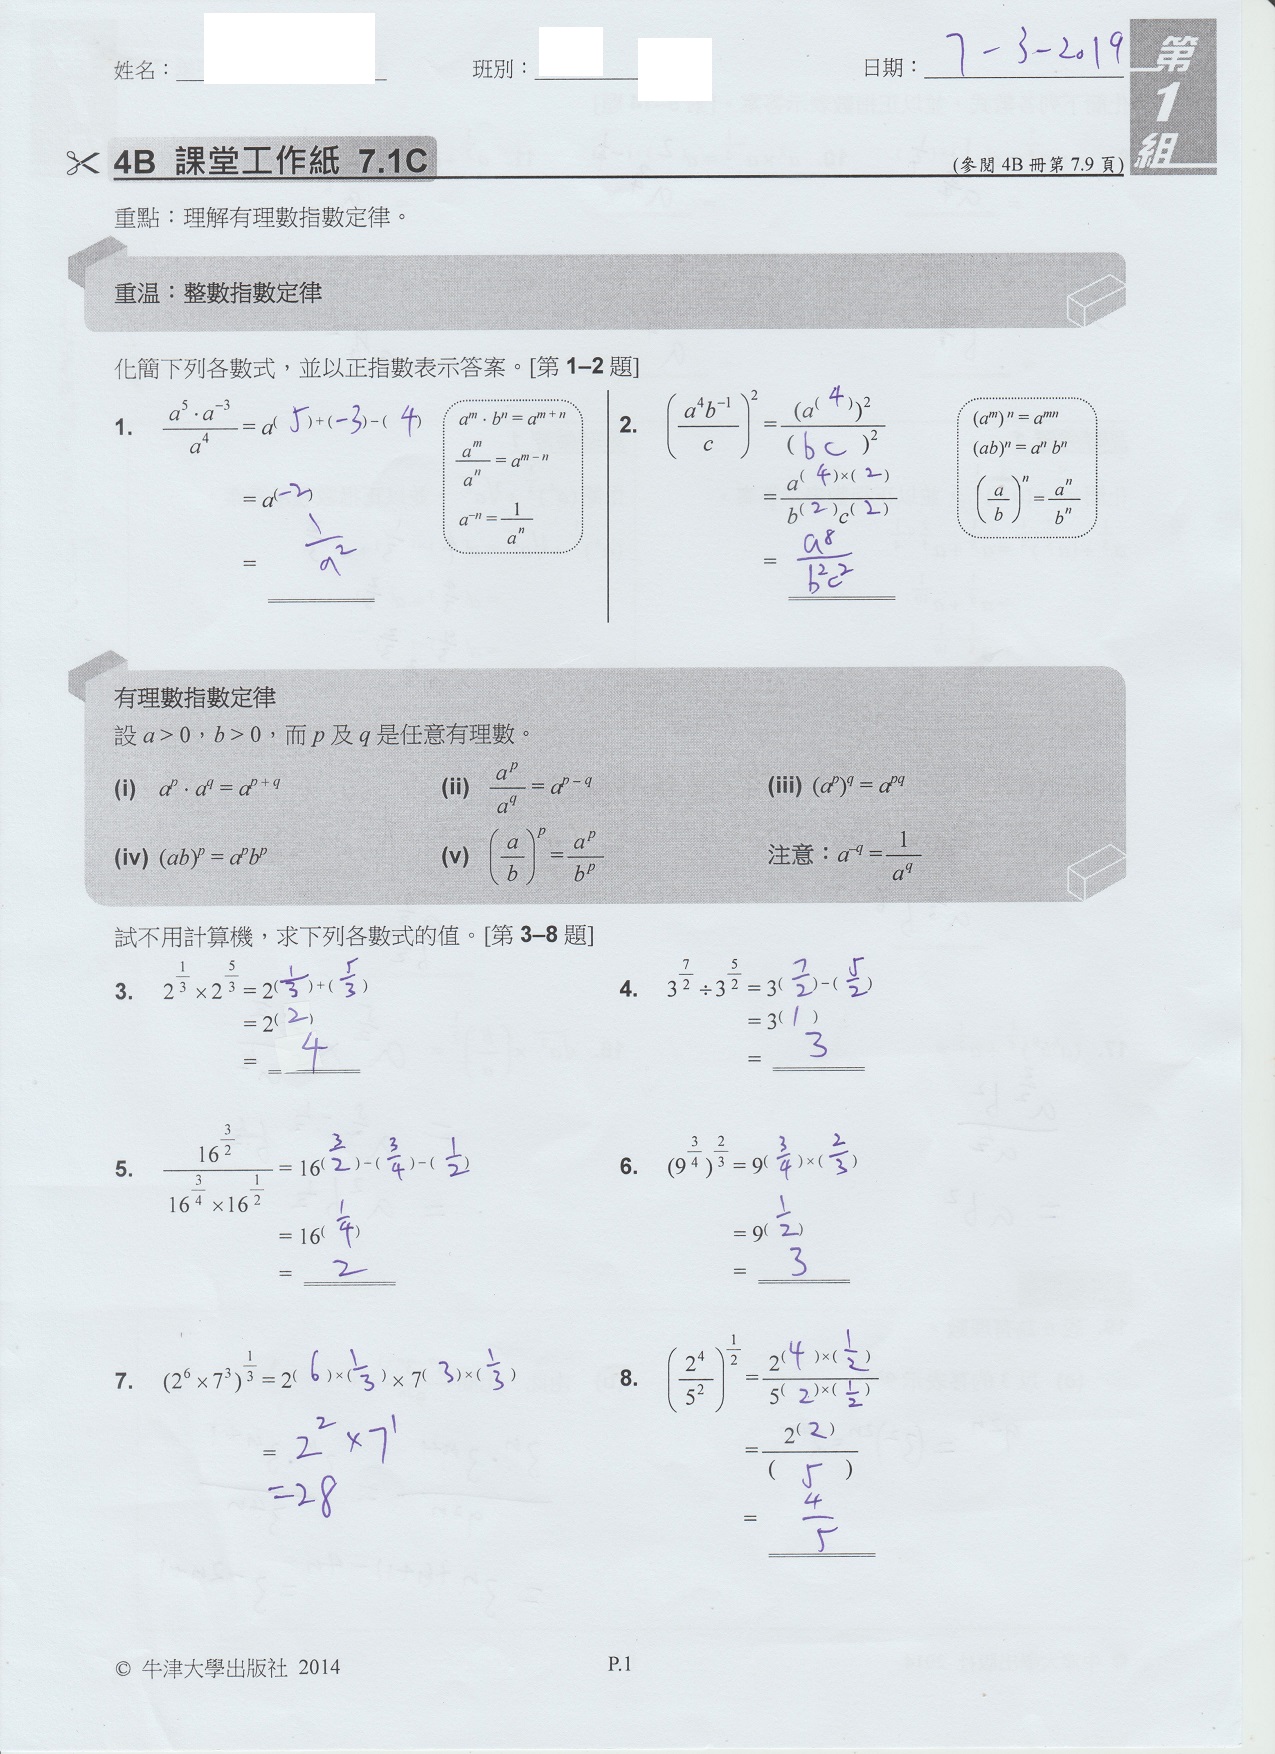 姓名：
班別：
日期： 7-3-2019
第1組
4B 課堂工作紙 7.1C
(參閱 4B 冊第 7.9 頁)
重點：理解有理數指數定律。
重温：整數指數定律
化簡下列各數式，並以正指數表示答案。[第 1–2 題]
1. (a⁵ · a⁻³)/a⁴ = a^( 5 )+(-3)-( 4 )
= a^(-2)
= 1/a²
aᵐ · bⁿ = aᵐ⁺ⁿ
aᵐ/aⁿ = aᵐ⁻ⁿ
a⁻ⁿ = 1/aⁿ
2. (a⁴b⁻¹/c)² = (a^( 4 ))²/( bc )²
= a^( 4 )×( 2 )/b^( 2 )c^( 2 )
= a⁸/b²c²
(aᵐ)ⁿ = aᵐⁿ
(ab)ⁿ = aⁿ bⁿ
(a/b)ⁿ = aⁿ/bⁿ
有理數指數定律
設 a > 0，b > 0，而 p 及 q 是任意有理數。
(i) a^p · a^q = a^(p + q) (ii) a^p/a^q = a^(p – q) (iii) (a^p)^q = a^(pq)
(iv) (ab)^p = a^p b^p (v) (a/b)^p = a^p/b^p 注意：a^–q = 1/a^q
試不用計算機，求下列各數式的值。[第 3–8 題]
3. 2^(1/3) × 2^(5/3) = 2^( 1/3 )+( 5/3 )
= 2^( 2 )
= 4
4. 3^(7/2) ÷ 3^(5/2) = 3^( 7/2 )-( 5/2 )
= 3^( 1 )
= 3
5. 16^(3/2)/(16^(3/4) × 16^(1/2)) = 16^( 3/2 )-( 3/4 )-( 1/2 )
= 16^( 1/4 )
= 2
6. (9^(3/4))^(2/3) = 9^( 3/4 )×( 2/3 )
= 9^( 1/2 )
= 3
7. (2⁶ × 7³)^(1/3) = 2^( 6 )×( 1/3 ) × 7^( 3 )×( 1/3 )
= 2² × 7¹
= 28
8. (2⁴/5²)^(1/2) = 2^( 4 )×( 1/2 )/5^( 2 )×( 1/2 )
= 2^( 2 )/( 5 )
= 4/5
© 牛津大學出版社 2014
P.1